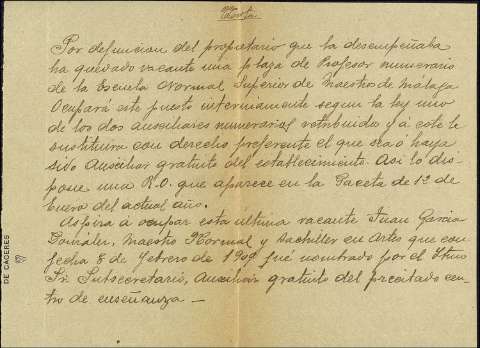 Nota
Por defuncion del propietario que la desempeñaba
ha quedado vacante una plaza de Profesor numerario
de la Escuela Normal Superior de Maestros de Málaga
Ocupará este puesto interinamente segun la ley uno
de los dos auxiliares numerarios retribuidos y á este le
sustituira con derecho preferente el que sea o haya
sido Auxiliar gratuito del establecimiento. Asi lo dis-
pone una R.O. que aparece en la Gaceta de 1º de
Enero del actual año.
Aspira á ocupar esta ultima vacante Juan Garcia
González, Maestro Normal y Bachiller en Artes que con
fecha 8 de Febrero de 1909 fué nombrado por el Iltmo
Sr. Subsecretario, Auxiliar gratuito del precitado cen-
tro de enseñanza —
DE CACERES